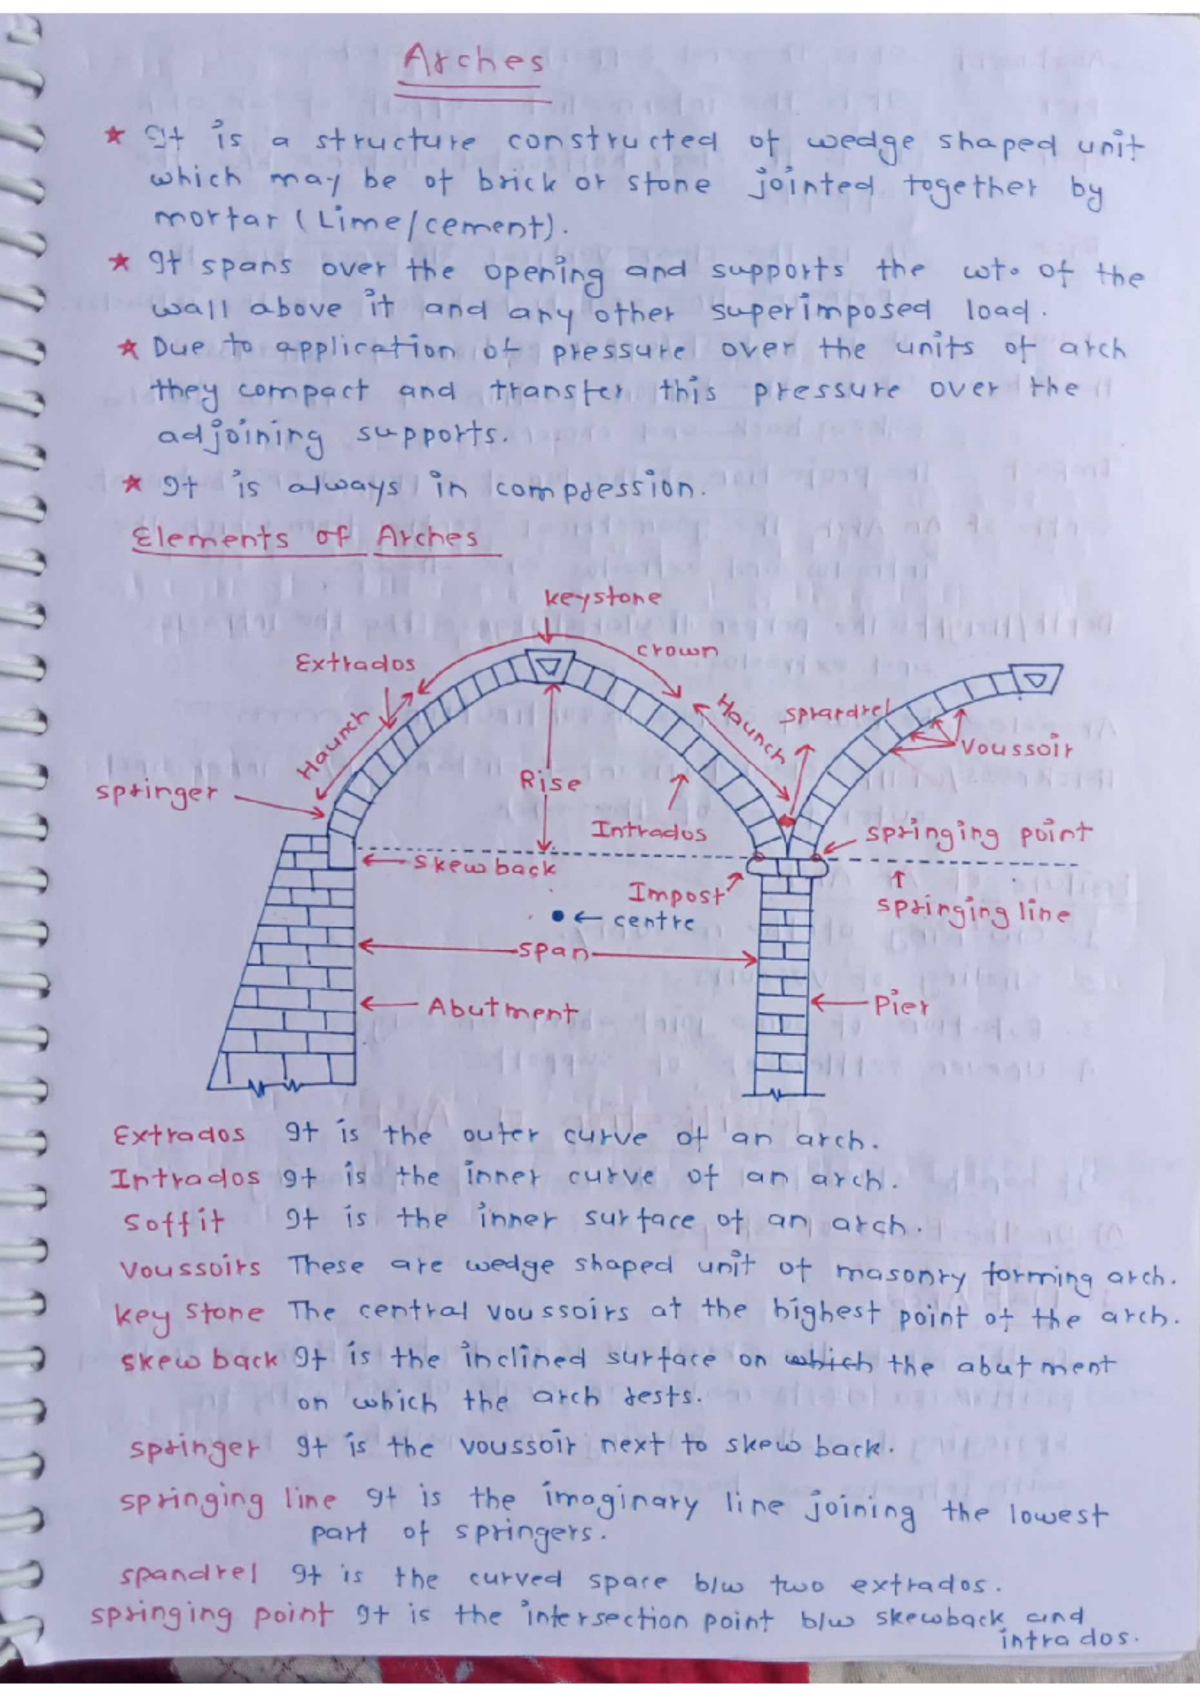 Arches
★ It is a structure constructed of wedge shaped unit
which may be of brick or stone jointed together by
mortar (Lime/cement).
★ It spans over the opening and supports the wt. of the
wall above it and any other superimposed load.
★ Due to application of pressure over the units of arch
they compact and transfer this pressure over the
adjoining supports.
★ It is always in compression.
Elements of Arches
keystone
crown
Extrados
Haunch
Haunch
sprardrel
Voussoir
springer
Rise
Intrados
springing point
skew back
Impost
springing line
centre
span
Abutment
Pier
Extrados It is the outer curve of an arch.
Intrados It is the inner curve of an arch.
Soffit It is the inner surface of an arch.
Voussoirs These are wedge shaped unit of masonry forming arch.
key stone The central voussoirs at the highest point of the arch.
skew back It is the inclined surface on which the abutment
on which the arch rests.
springer It is the voussoir next to skew back.
springing line It is the imaginary line joining the lowest
part of springers.
spandrel It is the curved space b/w two extrados.
springing point It is the intersection point b/w skewback and
intrados.